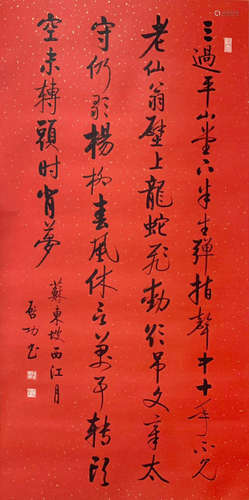 三過平山堂下半生彈指聲中十年不見
老仙翁壁上龍蛇飛動欲吊文章太
守仍歌楊柳春風休言萬事轉頭
空未轉頭时皆夢
蘇東坡西江月
啓功书